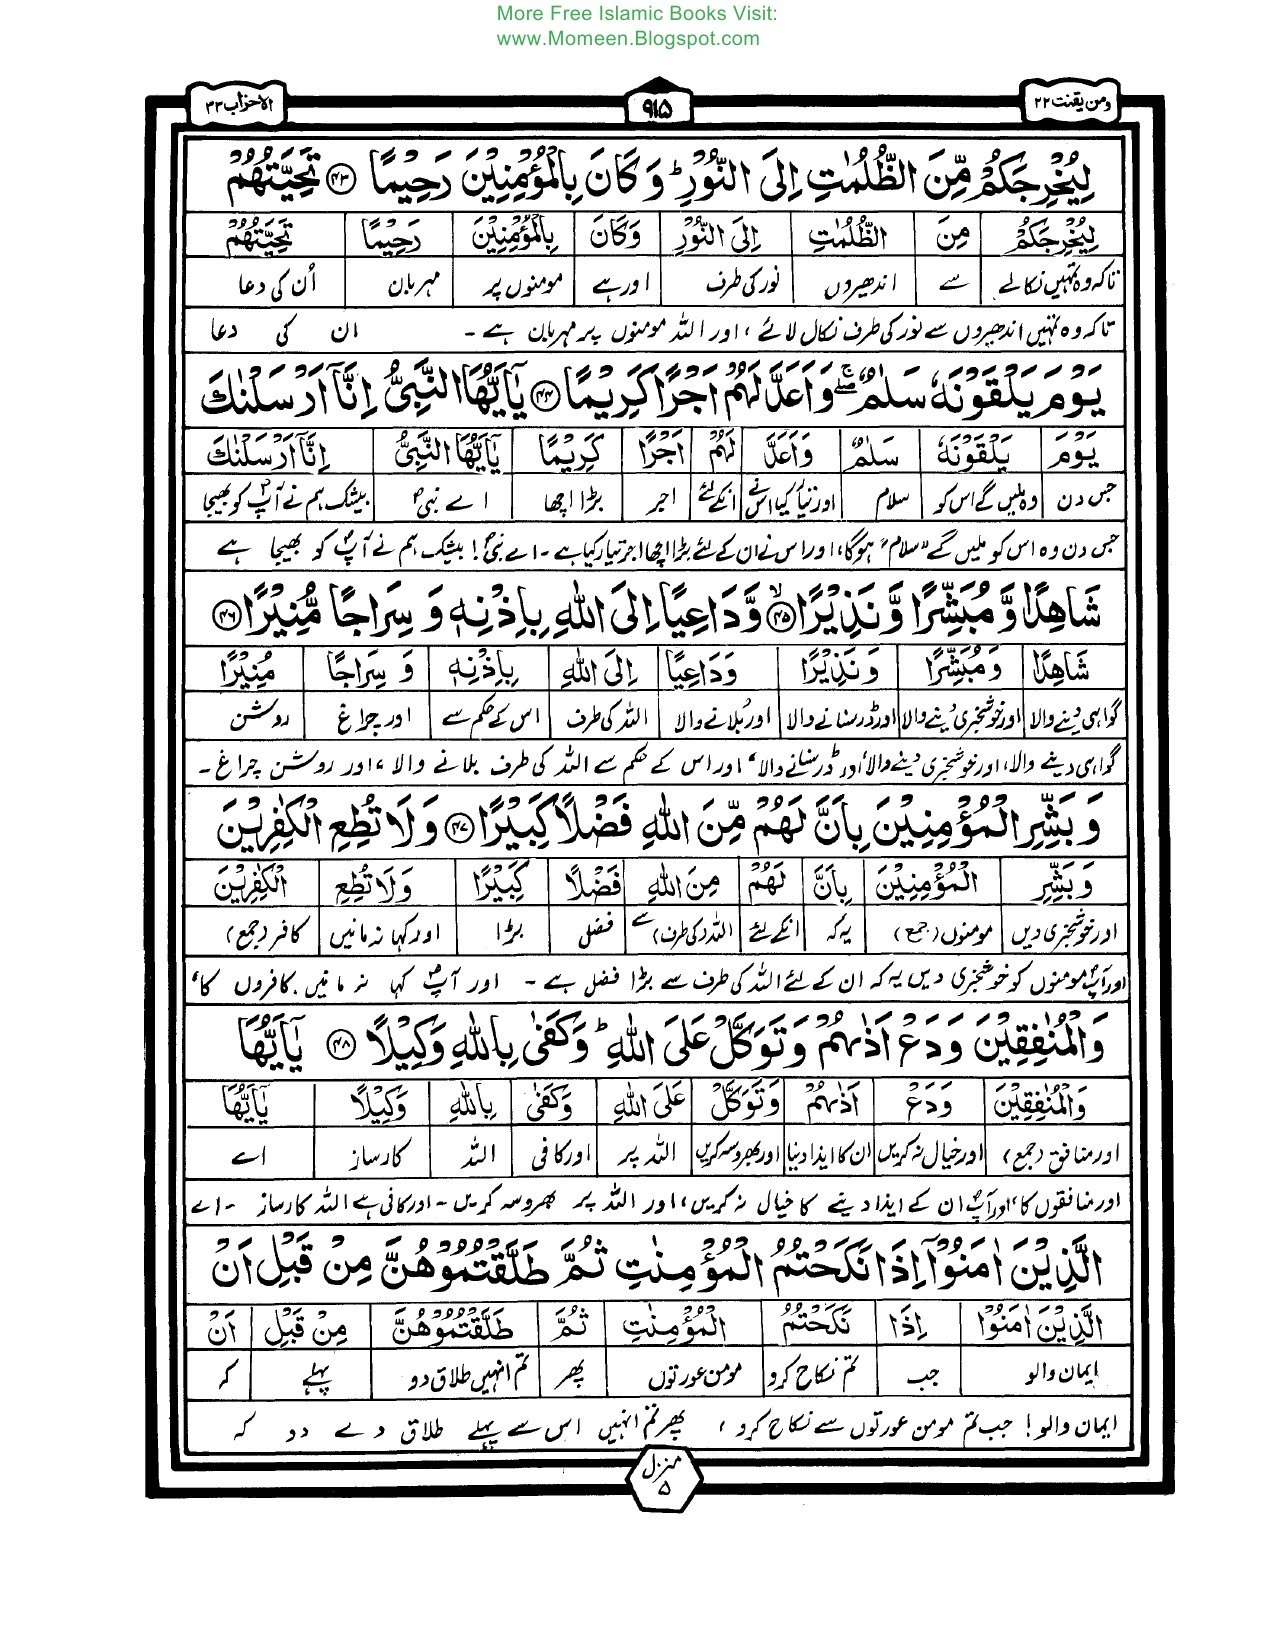 More Free Islamic Books Visit:
www.Momeen.Blogspot.com
ومن یقنت ۲۲ ۹۱۵ الاحزاب ۳۳
لِيُخْرِجَكُمْ مِّنَ الظُّلُمٰتِ اِلَى النُّوْرِ ؕ وَ كَانَ بِالْمُؤْمِنِيْنَ رَحِيْمًا ۴۳ تَحِيَّتُهُمْ
لِيُخْرِجَكُمْ مِنَ الظُّلُمٰتِ اِلَى النُّوْرِ وَكَانَ بِالْمُؤْمِنِيْنَ رَحِيْمًا تَحِيَّتُهُمْ
تاکہ وہ تمہیں نکالے سے اندھیروں نور کی طرف اور ہے مومنوں پر مہربان اُن کی دعا
تاکہ وہ تمہیں اندھیروں سے نور کی طرف نکال لائے ، اور اللہ مومنوں پر مہربان ہے ۔ ان کی دعا
يَوْمَ يَلْقَوْنَهٗ سَلٰمٌ ۖۚ وَاَعَدَّ لَهُمْ اَجْرًا كَرِيْمًا ۴۴ يٰۤاَيُّهَا النَّبِىُّ اِنَّاۤ اَرْسَلْنٰكَ
يَوْمَ يَلْقَوْنَهٗ سَلٰمٌ وَاَعَدَّ لَهُمْ اَجْرًا كَرِيْمًا يٰۤاَيُّهَا النَّبِىُّ اِنَّاۤ اَرْسَلْنٰكَ
جس دن وہ ملیں گے اس کو سلام اور تیار کیا اس نے انکے لئے اجر بڑا اچھا اے نبیؐ بیشک ہم نے آپؐ کو بھیجا
جس دن وہ اس کو ملیں گے "سلام" ہوگا، اور اس نے ان کے لئے بڑا اچھا اجر تیار کیا ہے ۔ اے نبیؐ ! بیشک ہم نے آپؐ کو بھیجا ہے
شَاهِدًا وَّ مُبَشِّرًا وَّ نَذِيْرًا ۙ۴۵ وَّدَاعِيًا اِلَى اللّٰهِ بِاِذْنِهٖ وَ سِرَاجًا مُّنِيْرًا ۴۶
شَاهِدًا وَ مُبَشِّرًا وَ نَذِيْرًا وَدَاعِيًا اِلَى اللّٰهِ بِاِذْنِهٖ وَ سِرَاجًا مُنِيْرًا
گواہی دینے والا اور خوشخبری دینے والا اور ڈر سنانے والا اور بُلانے والا اللہ کی طرف اس کے حکم سے اور چراغ روشن
گواہی دینے والا، اور خوشخبری دینے والا، اور ڈر سنانے والا، اور اس کے حکم سے اللہ کی طرف بلانے والا ، اور روشن چراغ ۔
وَ بَشِّرِ الْمُؤْمِنِيْنَ بِاَنَّ لَهُمْ مِّنَ اللّٰهِ فَضْلًا كَبِيْرًا ۴۷ وَلَا تُطِعِ الْكٰفِرِيْنَ
وَ بَشِّرِ الْمُؤْمِنِيْنَ بِاَنَّ لَهُمْ مِنَ اللّٰهِ فَضْلًا كَبِيْرًا وَلَا تُطِعِ الْكٰفِرِيْنَ
اور خوشخبری دیں مومنوں (جمع) یہ کہ انکے لئے اللہ (کی طرف) سے فضل بڑا اور کہا نہ مانیں کافر (جمع)
اور آپؐ مومنوں کو خوشخبری دیں یہ کہ ان کے لئے اللہ کی طرف سے بڑا فضل ہے ۔ اور آپؐ کہا نہ مانیں کافروں کا،
وَالْمُنٰفِقِيْنَ وَ دَعْ اَذٰىهُمْ وَ تَوَكَّلْ عَلَى اللّٰهِ ؕ وَكَفٰى بِاللّٰهِ وَكِيْلًا ۴۸ يٰۤاَيُّهَا
وَالْمُنٰفِقِيْنَ وَدَعْ اَذٰىهُمْ وَتَوَكَّلْ عَلَى اللّٰهِ وَكَفٰى بِاللّٰهِ وَكِيْلًا يٰۤاَيُّهَا
اور منافق (جمع) اور خیال نہ کریں ان کا ایذا دینا اور بھروسہ کریں اللہ پر اور کافی اللہ کارساز اے
اور منافقوں کا، اور آپؐ ان کے ایذا دینے کا خیال نہ کریں، اور اللہ پر بھروسہ کریں ۔ اور کافی ہے اللہ کارساز ۔ اے
الَّذِيْنَ اٰمَنُوْۤا اِذَا نَكَحْتُمُ الْمُؤْمِنٰتِ ثُمَّ طَلَّقْتُمُوْهُنَّ مِنْ قَبْلِ اَنْ
الَّذِيْنَ اٰمَنُوْا اِذَا نَكَحْتُمُ الْمُؤْمِنٰتِ ثُمَّ طَلَّقْتُمُوْهُنَّ مِنْ قَبْلِ اَنْ
ایمان والو جب تم نکاح کرو مومن عورتوں پھر تم انہیں طلاق دو پہلے کہ
ایمان والو! جب تم مومن عورتوں سے نکاح کرو ، پھر تم انہیں اس سے پہلے طلاق دے دو کہ
منزل
۵